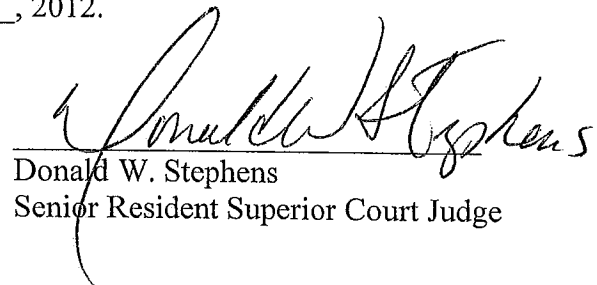 _, 2012.
Donald W Stephens
Donald W. Stephens
Senior Resident Superior Court Judge